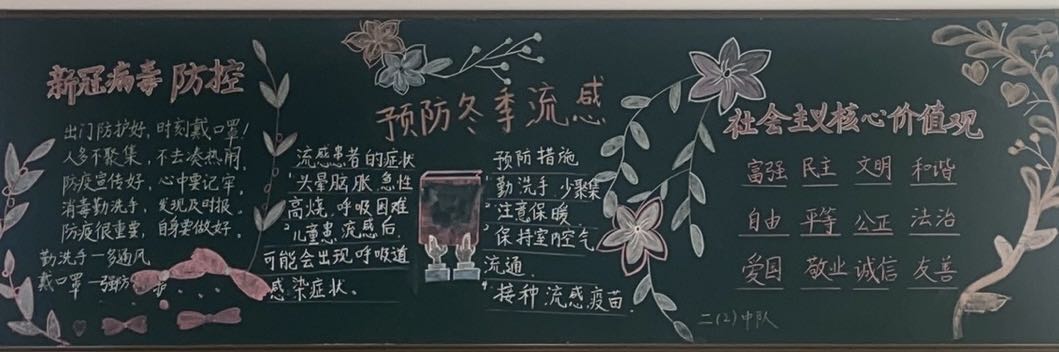 新冠病毒防控
出门防护好，时刻戴口罩！
人多不聚集，不去凑热闹，
防疫宣传好，心中要记牢。
消毒勤洗手，发现及时报。
防疫很重要，自身要做好。
勤洗手一多通风
戴口罩一强防护
预防冬季流感
流感患者的症状
1.头晕脑胀.急性
高烧.呼吸困难
2.儿童患流感后.
可能会出现呼吸道
感染症状.
预防措施
1.勤洗手.少聚集
2.注意保暖
3.保持室内空气
流通.
4.接种流感疫苗
社会主义核心价值观
富强 民主 文明 和谐
自由 平等 公正 法治
爱国 敬业 诚信 友善
二(2)中队